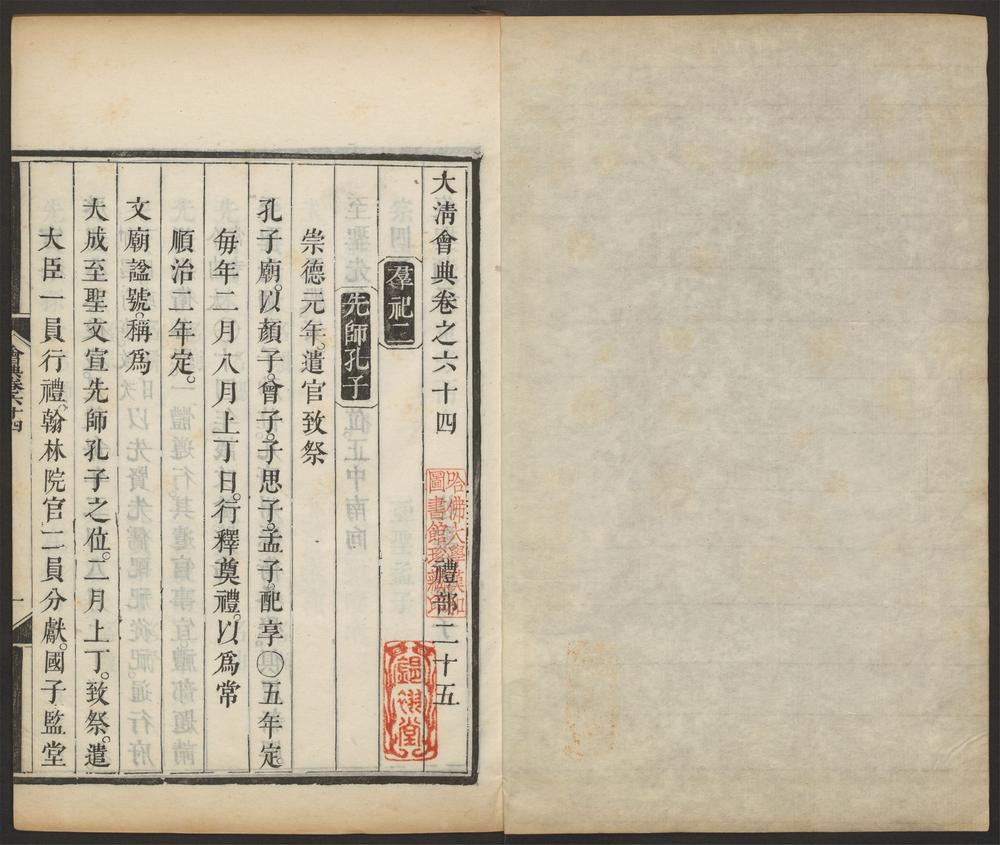 大淸會典卷之六十四　禮部二十五
哈佛大學漢和
圖書館珍藏印
羣祀二
先師孔子
崇德元年。遣官致祭
孔子廟。以顏子。曾子。子思子。孟子。配享○五年定。
每年二月八月上丁日。行釋奠禮。以爲常
順治二年定。
文廟諡號。稱爲
大成至聖文宣先師孔子之位。二月上丁。致祭。遣
大臣一員行禮。翰林院官二員分獻。國子監堂
會典卷六十四　一